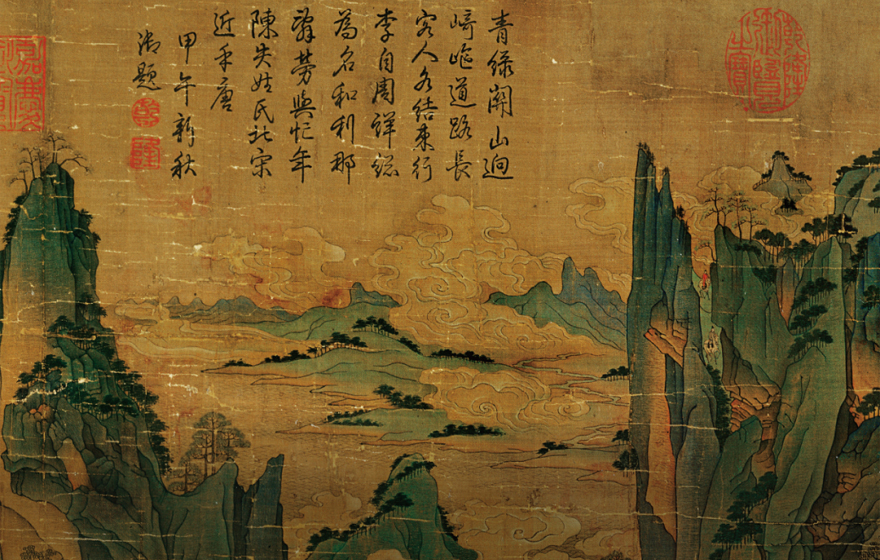 乾隆御覽之寶
青綠關山迥
崎嶇道路長
客人各結束行
李自周詳總
為名和利那
辭勞與忙年
陳失姓氏北宋
近乎唐
甲午新秋
御題
乾
隆